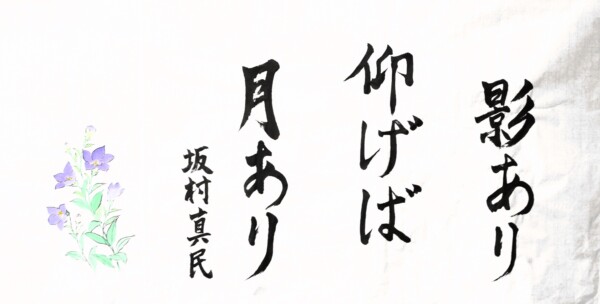 影あり
仰げば
月あり
坂村真民